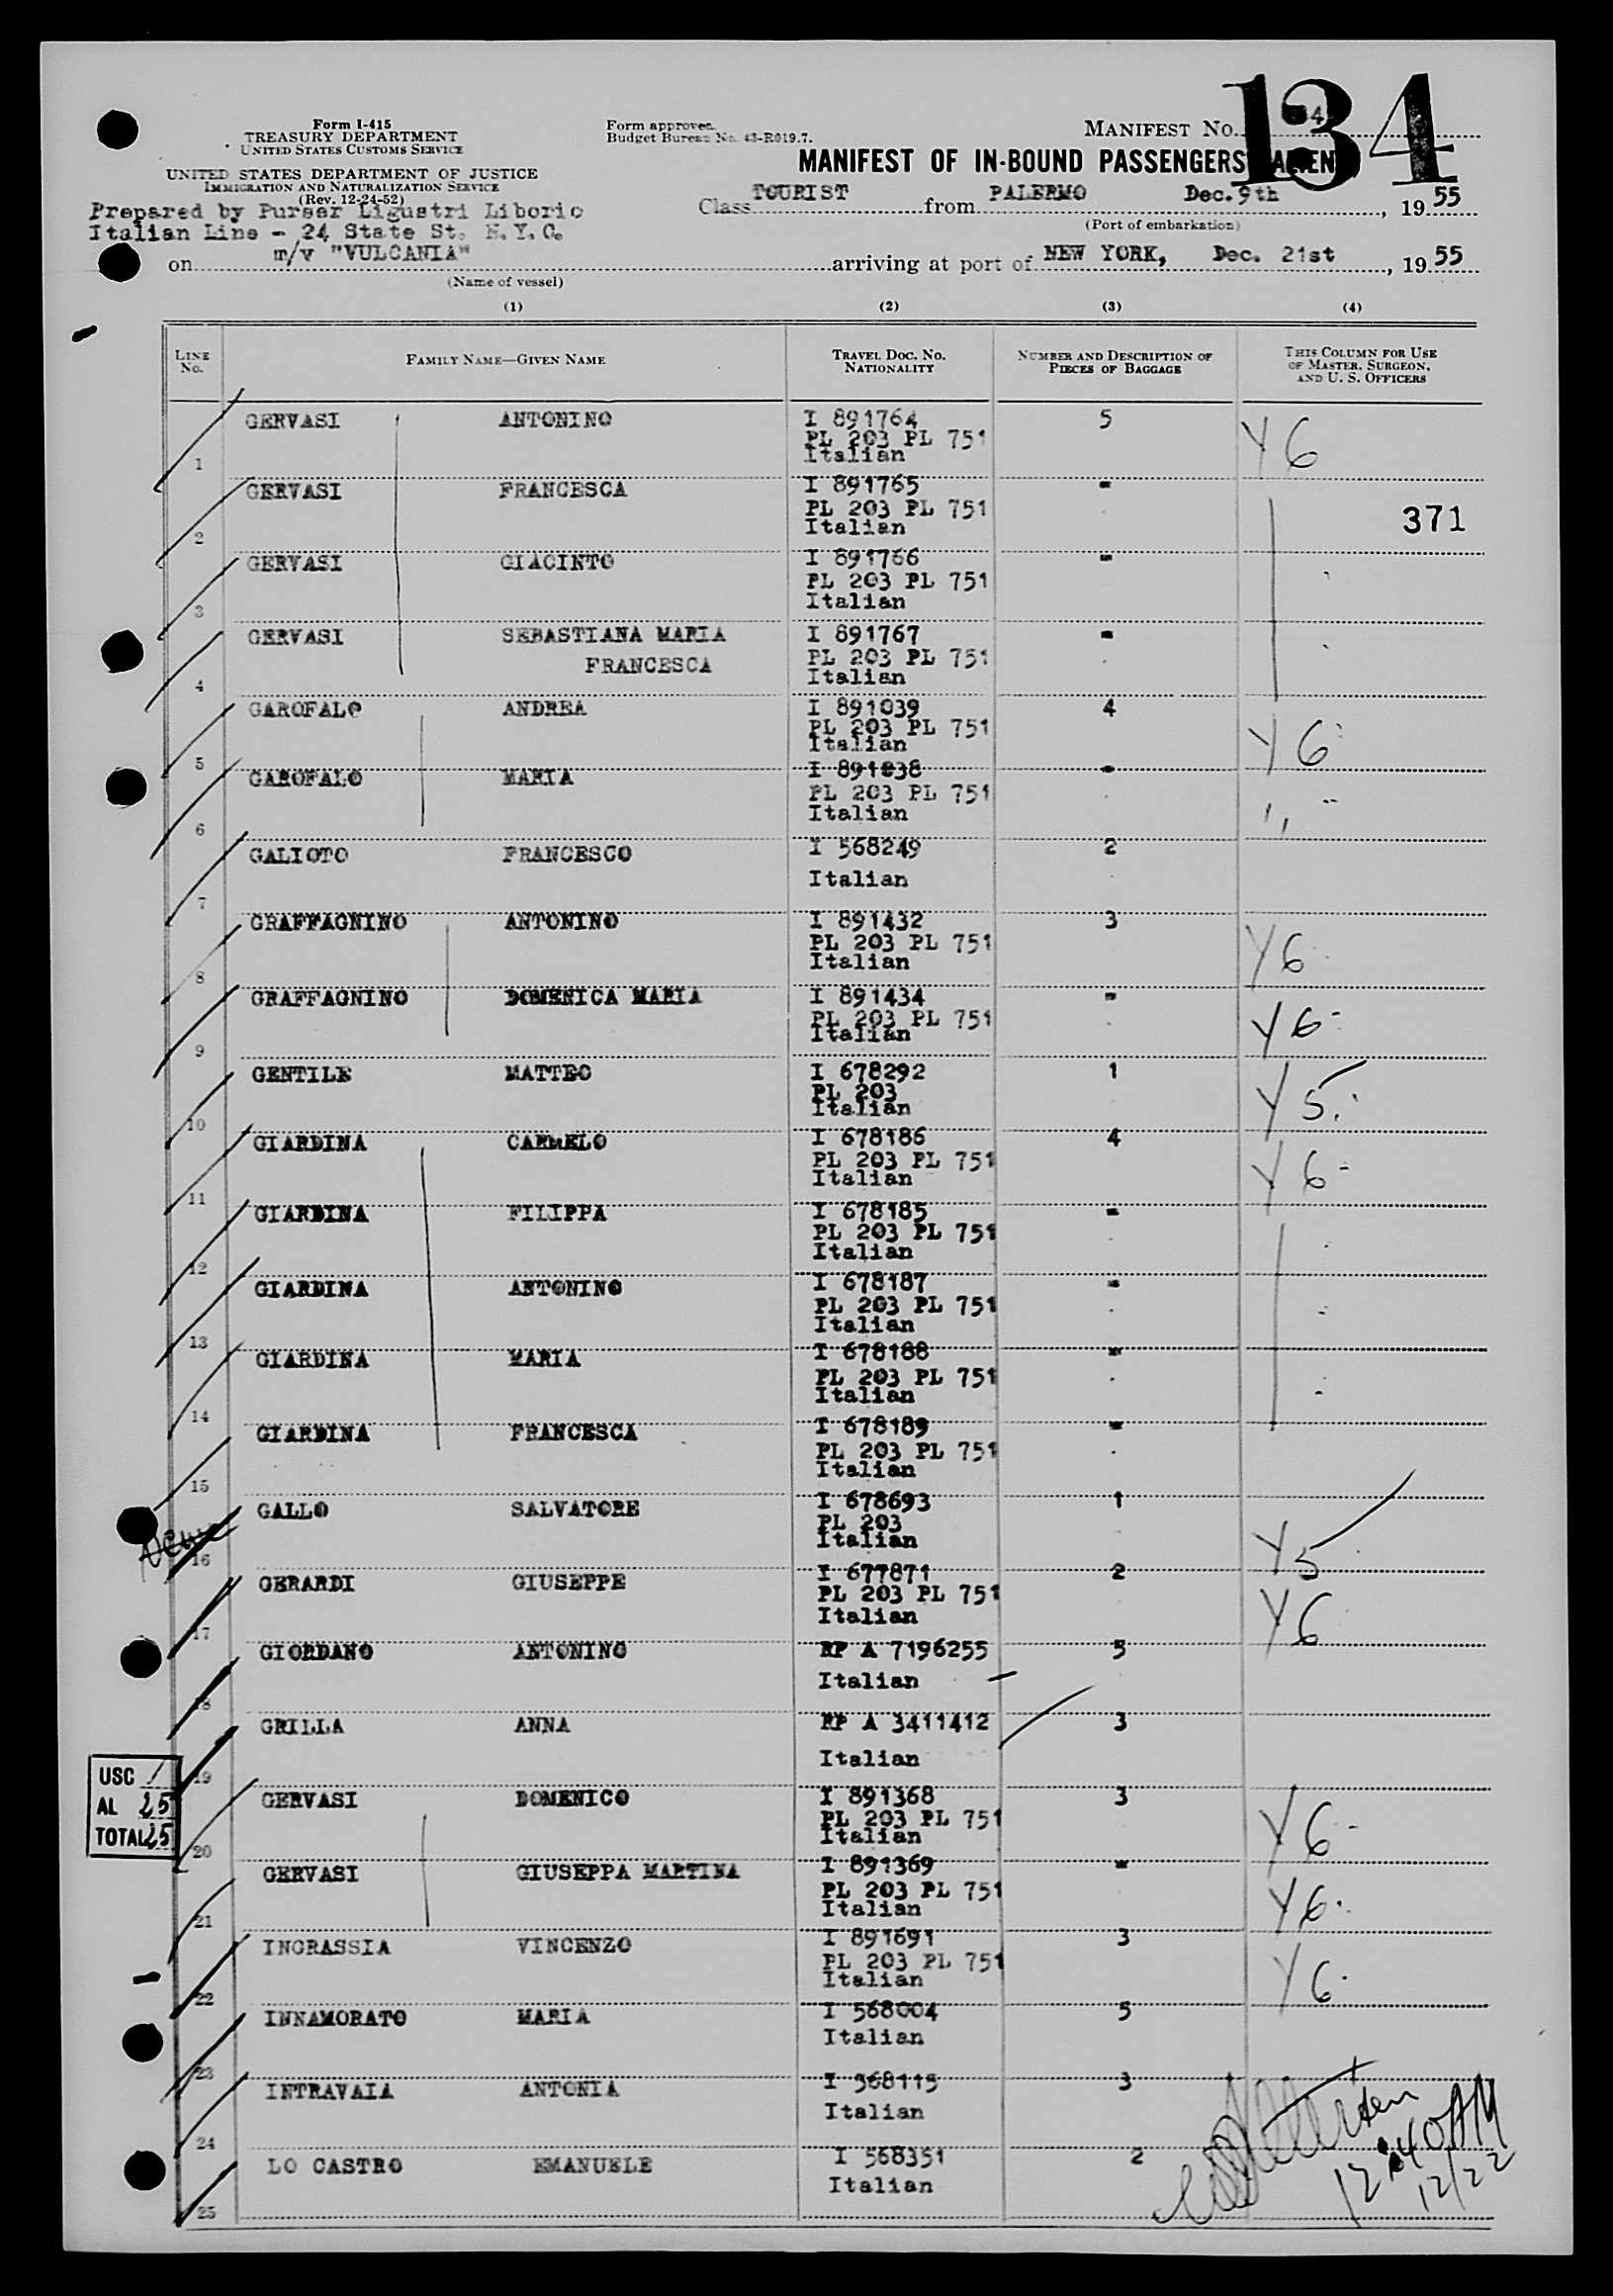 134
Form I-415
TREASURY DEPARTMENT
UNITED STATES CUSTOMS SERVICE
UNITED STATES DEPARTMENT OF JUSTICE
IMMIGRATION AND NATURALIZATION SERVICE
(Rev. 12-24-52)
Form approved.
Budget Bureau No. 43-R019.7.
MANIFEST NO. 4
MANIFEST OF IN-BOUND PASSENGERS (ALIEN)
Prepared by Purser Ligustri Liborio
Italian Line - 24 State St. N.Y.C.
Class TOURIST from PALERMO Dec.9th, 1955
(Port of embarkation)
on m/v "VULCANIA" arriving at port of NEW YORK, Dec. 21st, 1955
(Name of vessel)
(1) (2) (3) (4)
LINE No. FAMILY NAME—GIVEN NAME TRAVEL DOC. NO. NATIONALITY NUMBER AND DESCRIPTION OF PIECES OF BAGGAGE THIS COLUMN FOR USE OF MASTER, SURGEON, AND U. S. OFFICERS
1 GERVASI ANTONINO I 891764 5 Y6
PL 203 PL 751
Italian
2 GERVASI FRANCESCA I 891765 -
PL 203 PL 751 371
Italian
3 GERVASI GIACINTO I 891766 -
PL 203 PL 751
Italian
4 GERVASI SEBASTIANA MARIA I 891767 -
FRANCESCA PL 203 PL 751
Italian
5 GAROFALO ANDREA I 891039 4 Y6
PL 203 PL 751
Italian
6 GAROFALO MARIA I 891038 -
PL 203 PL 751
Italian
7 GALIOTO FRANCESCO I 568249 2
Italian
8 GRAFFAGNINO ANTONINO I 891432 3 Y6
PL 203 PL 751
Italian
9 GRAFFAGNINO DOMENICA MARIA I 891434 - Y6-
PL 203 PL 751
Italian
10 GENTILE MATTEO I 678292 1 Y5
PL 203
Italian
11 GIARDINA CARMELO I 678186 4 Y6-
PL 203 PL 751
Italian
12 GIARDINA FILIPPA I 678185 -
PL 203 PL 751
Italian
13 GIARDINA ANTONINO I 678187 -
PL 203 PL 751
Italian
14 GIARDINA MARIA I 678188 -
PL 203 PL 751
Italian
15 GIARDINA FRANCESCA I 678189 -
PL 203 PL 751
Italian
16 GALLO SALVATORE I 678693 1 Y5
PL 203
Italian
17 GERARDI GIUSEPPE I 677871 2 Y6
PL 203 PL 751
Italian
18 GIORDANO ANTONINO RP A 7196255 5
Italian
19 GRILLA ANNA RP A 3411412 3
Italian
USC /
AL 25
TOTAL 25
20 GERVASI DOMENICO I 891368 3 Y6-
PL 203 PL 751
Italian
21 GERVASI GIUSEPPA MARTINA I 891369 - Y6.
PL 203 PL 751
Italian
22 INGRASSIA VINCENZO I 891691 3 Y6.
PL 203 PL 751
Italian
23 INNAMORATO MARIA I 568004 5
Italian
24 INTRAVAIA ANTONIA I 568115 3
Italian
25 LO CASTRO EMANUELE I 568351 2
Italian
12:40AM
12/22